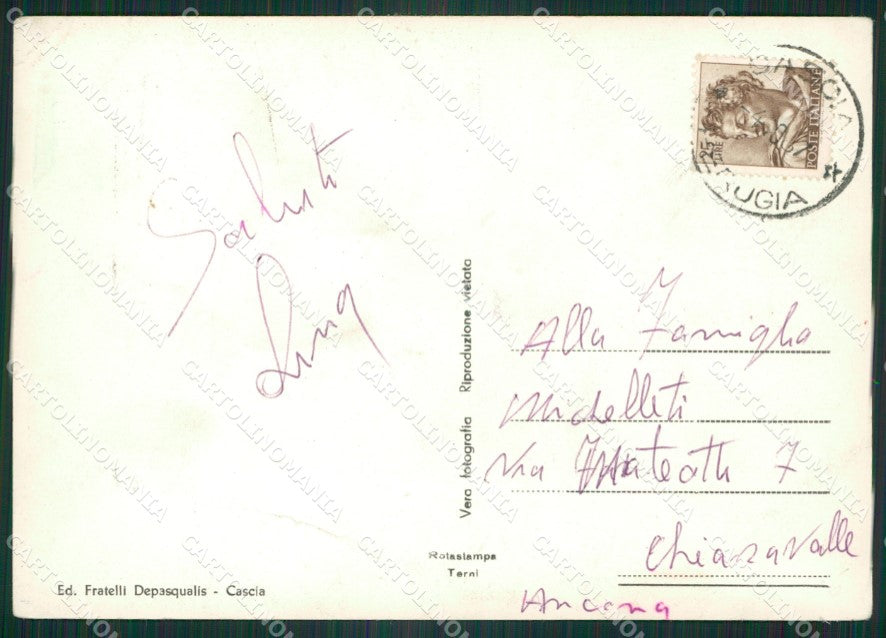 Saluti
Lina
CASCIA
PERUGIA
POSTE ITALIANE
LIRE 25
Vera fotografia Riproduzione vietata
Alla Famiglia
Via 7
Chiaravalle
Ancona
Rotastampa
Terni
Ed. Fratelli Depasqualis - Cascia
CARTOLINOMANIA